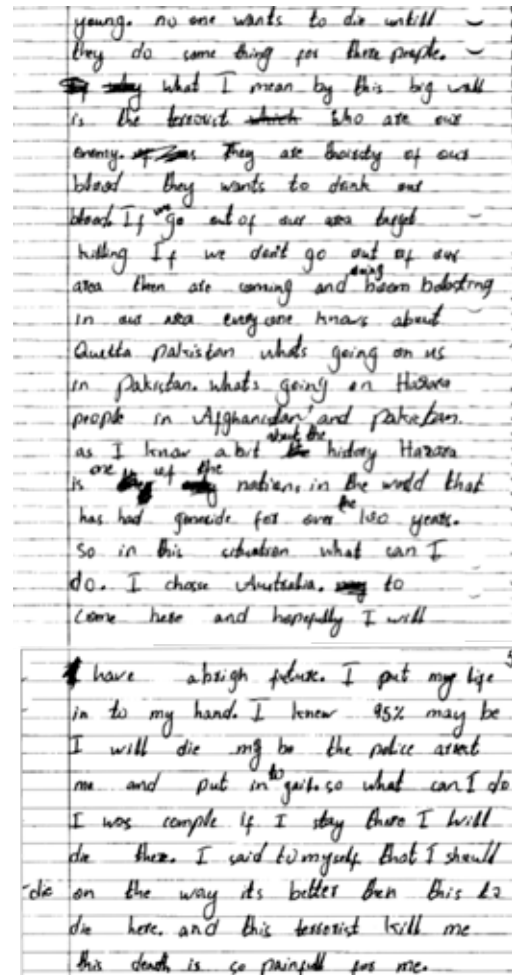 young. no one wants to die untill
they do some thing for there people.
what I mean by this big wall
is the terrorist which who are our
enemy. They are thorsty of our
blood they wants to drink our
blood. If we go out of our area target
killing If we don't go out of our
area then are coming and doing boom bolasting
in our area every one knows about
Quetta pakistan whats going on us
in pakistan. whats going on Hazara
people in Afghanistan and pakistan.
as I know a bit about the history Hazara
is one of the nations in the world that
has had genocide for over the 100 years.
so in this situation what can I
do. I chose Australia. to
come here and hopefully I will
5
have abrigh future. I put my life
in to my hand. I knew 95% may be
I will die my be the police arrest
me and put in to gail. so what can I do
I was comple if I stay there I will
die there. I said to myself that I should
die on the way its better then this to
die here. and this terrorist kill me
this death is so painfull for me.